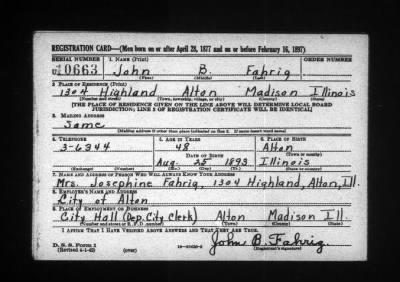 REGISTRATION CARD—(Men born on or after April 28, 1877 and on or before February 16, 1897)
SERIAL NUMBER 1. NAME (Print) ORDER NUMBER
U 10663 John B. Fahrig
(First) (Middle) (Last)
2. PLACE OF RESIDENCE (Print)
1304 Highland Alton Madison Illinois
(Number and street) (Town, township, village, or city) (County) (State)
[THE PLACE OF RESIDENCE GIVEN ON THE LINE ABOVE WILL DETERMINE LOCAL BOARD
JURISDICTION; LINE 2 OF REGISTRATION CERTIFICATE WILL BE IDENTICAL]
3. MAILING ADDRESS
Same
[Mailing address if other than place indicated on line 2. If same insert word same]
4. TELEPHONE 5. AGE IN YEARS 6. PLACE OF BIRTH
3-6344 48 Alton
DATE OF BIRTH (Town or county)
Aug. 25 1893 Illinois
(Exchange) (Number) (Mo.) (Day) (Yr.) (State or country)
7. NAME AND ADDRESS OF PERSON WHO WILL ALWAYS KNOW YOUR ADDRESS
Mrs. Josephine Fahrig, 1304 Highland, Alton, Ill.
8. EMPLOYER'S NAME AND ADDRESS
City of Alton
9. PLACE OF EMPLOYMENT OR BUSINESS
City Hall (Dep. City Clerk) Alton Madison Ill.
(Number and street or R. F. D. number) (Town) (County) (State)
I AFFIRM THAT I HAVE VERIFIED ABOVE ANSWERS AND THAT THEY ARE TRUE.
D. S. S. Form 1 John B. Fahrig
(Revised 4-1-42) (over) (Registrant's signature)